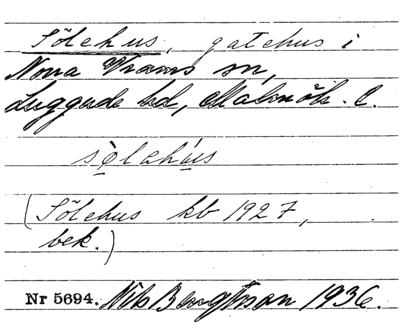 Sölehus, gatehus i
Norra Vrams sn,
Luggude hd, Malmöh. l.
sölahús
(Sölehus kb 1927,
bek.)
Nr 5694. Nils Bengtsson 1936.